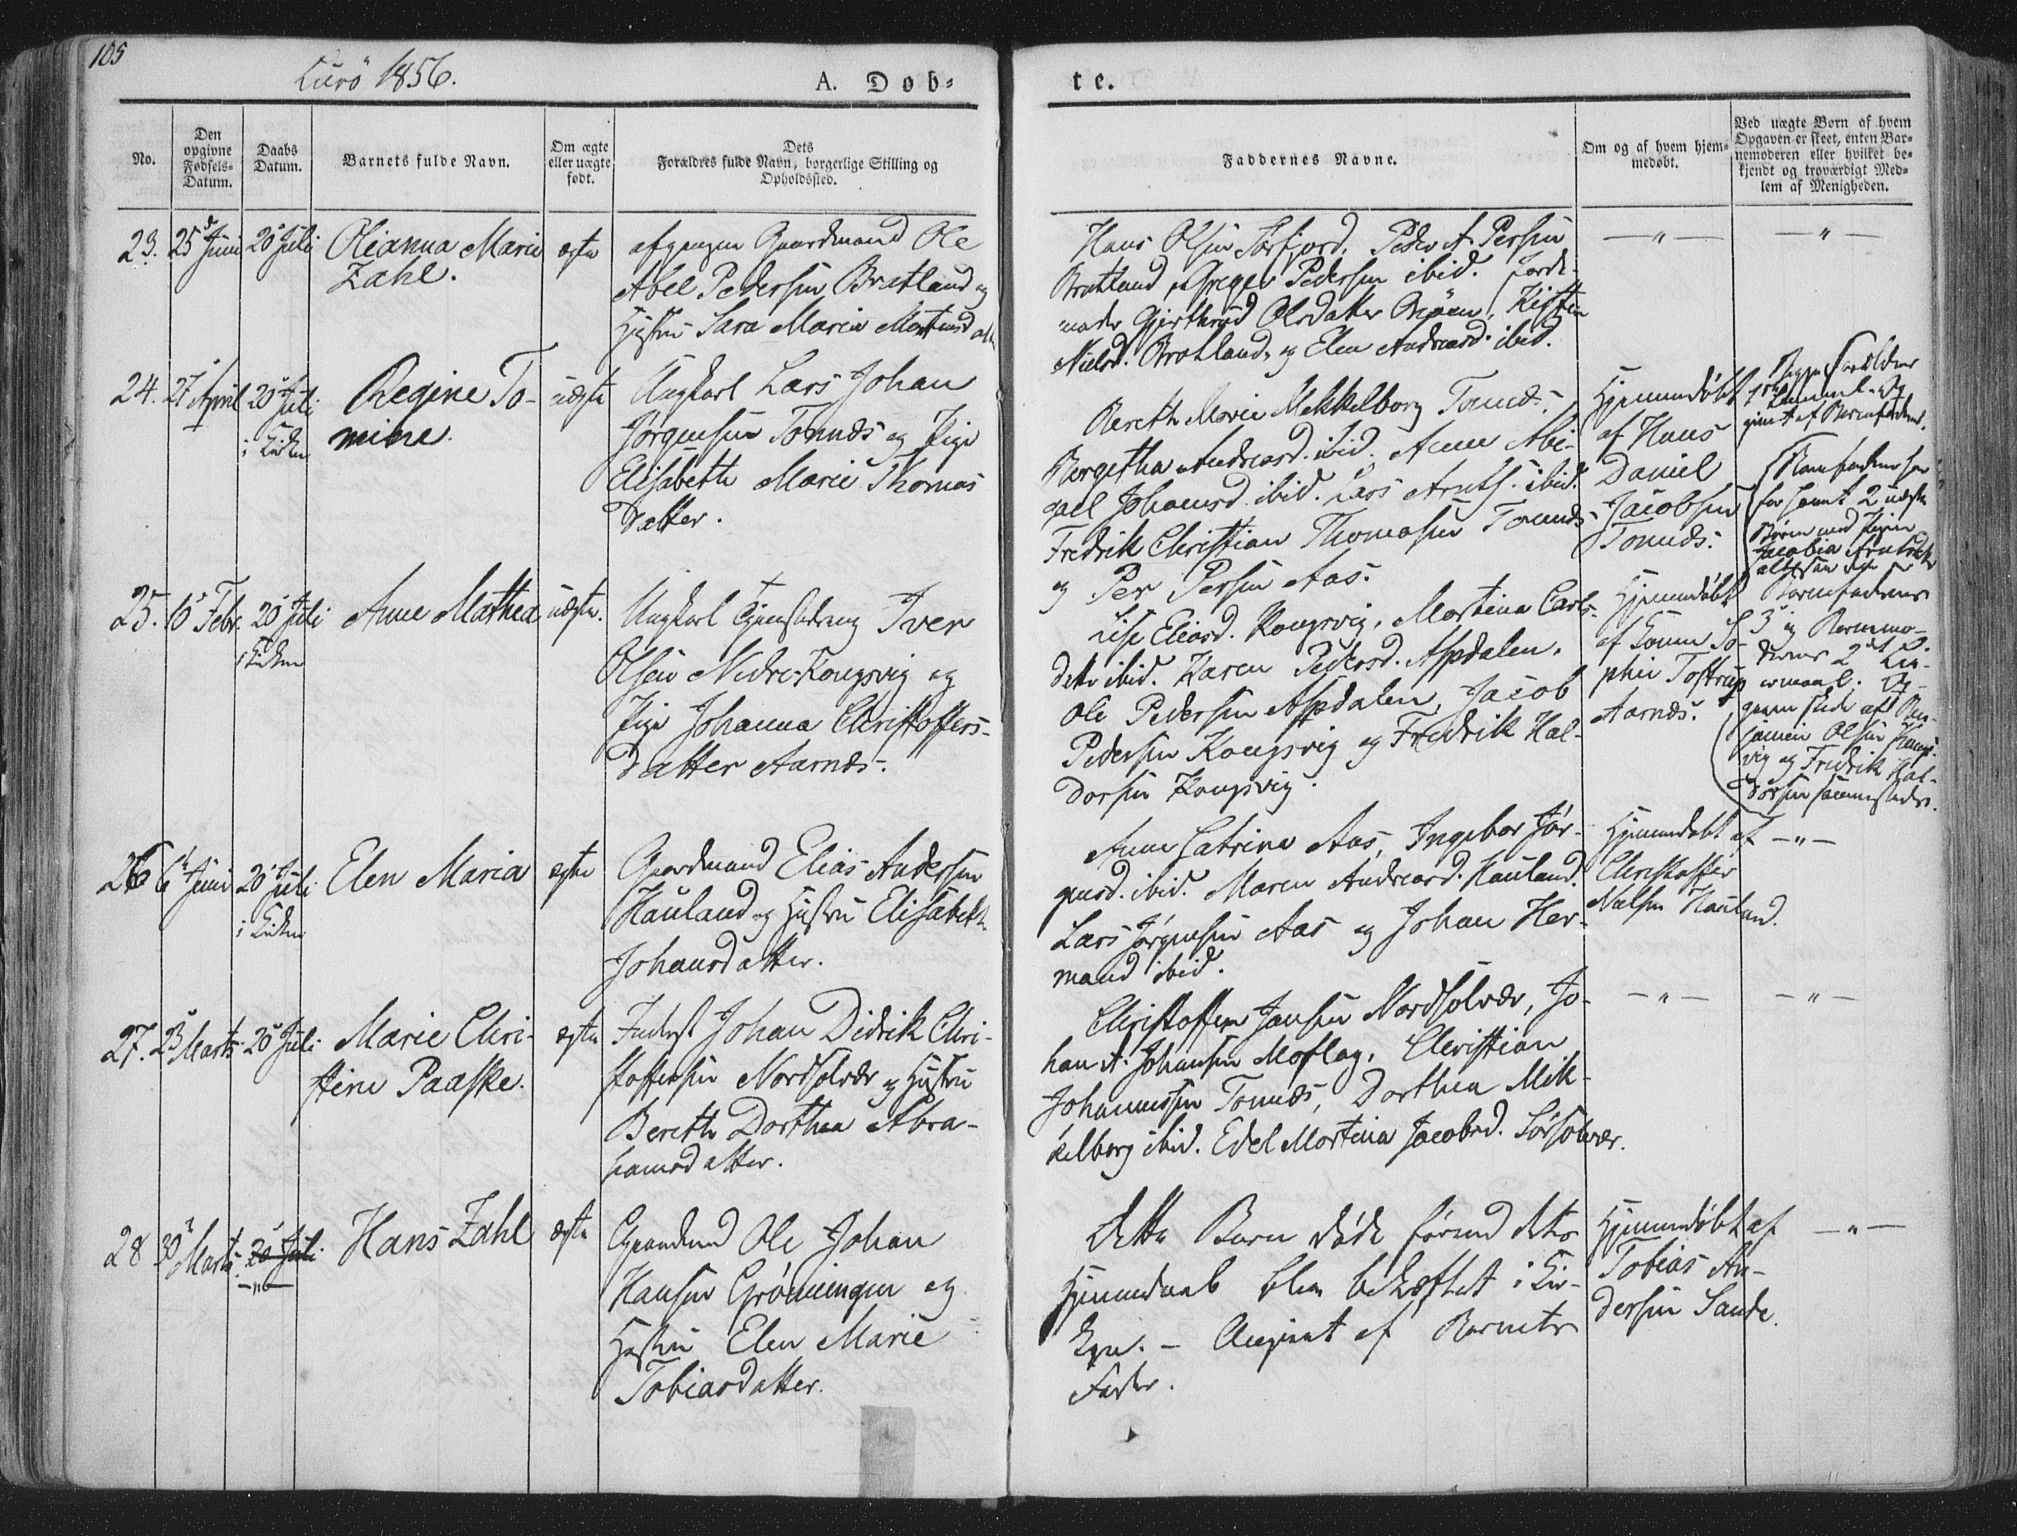 105
Lurö 1856.
A. Døb-
te.
No.
Den
opgivne
Fødsels-
Datum.
Daabs
Datum.
Barnets fulde Navn.
Om ægte
eller uægte
født.
Dets
Forældres fulde Navn, borgerlige Stilling og
Opholdssted.
Faddernes Navne.
Om og af hvem hjem-
medøbt.
Ved uægte Børn af hvem
Opgaven er skeet, enten Bar-
nemoderen eller hvilket be-
kjendt og troværdigt Med-
lem af Menigheden.
23. 25 Juni 20 Juli Olianna Marie
Zahl.
ægte
afgangen Gaardmand Ole
Abel Pedersen Bratland og
Hustru Sara Maria Mortensdatt
Hans Olsen Sørfjord, Peder A. Persen
Bratland, Greger Pedersen ibid. Jorde-
moder Gjerthrud Olsdatter Kirsten
Nielsd. Bratland, og Elen Andreasd. ibid.
— " —
— " —
24. 27 April 20 Juli
i Kirken
Regine To-
mine.
uægte
Ungkarl Lars Johan
Jørgensen Tonnæs og Pige
Elisabeth Marie Thomas
Datter.
Bereth Marie Mekkelborg Tonnæs,
Bergetha Andreasd. ibid. Anne Abi-
gael Johansd. ibid. Lars Arnts. ibid.
Fredrik Christian Thomasen Tonnæs
og Per Persen Aas.
Hjemmedøbt
af Hans
Daniel
Jacobsen
Tonnæs.
Begge Forældrenes
1ste Leiermaal. Op-
givet af Barnefaderen.
Barnefaderen har
før havt 2 uægte
Børn med Pigen
Jacobia
25. 10 Febr. 20 Juli
i Kirken
Anne Mathea
uægte.
Ungkarl Tjenestedreng Iver
Olsen Nedre-Kongsvig og
Pige Johanna Christoffers-
Datter Aarnæs.
Lise Eliasd. Kongsvig, Mortina Carls-
datter ibid. Karen Pedersd. Aspdalen,
Ole Pedersen Aspdalen, Jacob
Pedersen Kongsvig og Fredrik Hal-
dorsen Kongsvig.
Hjemmedøbt
af Tomine So-
phie Tostrup
Aarnæs.
Barnefaderens
3de og Barnemo-
derens 2det Lei-
ermaal. Op-
givet skede af Ben-
jamin Olsen Kongs-
vig og Fredrik Hal-
dorsen sammesteds.
26 6 Juni 20 Juli
i Kirken
Elen Maria
ægte
Gaardmand Elias Andersen
Hauland og Hustru Elisabeth
Johansdatter.
Anne Catrina Aas, Ingebor Jør-
gensd. ibid. Maren Andreasd. Hauland.
Lars Jørgensen Aas og Johan Her-
mand ibid.
Hjemmedøbt af
Christoffer
Nielsen Hauland.
— " —
27. 23 Marts 20 Juli Marie Chri-
stine Paaske.
ægte
Inderst Johan Didrik Chri-
stoffersen Nordsolvær og Hustru
Bereth Dorthea Abra-
hamsdatter.
Christoffer Jansen Nordsolvær, Jo-
han A. Johansen Moflag, Christian
Johannessen Tonnæs, Dorthea Mik-
kelborg ibid. Edel Mortina Jacobsd. Sørsolvær.
— " —
— " —
28 30 Marts 20 Juli
— " —
Hans Zahl
ægte
Gaardmd Ole Johan
Hansen Grønningen og
Hustru Elen Marie
Tobiasdatter.
Dette Barn døde førend dets
Hjemmedaab blev bekræftet i Kir-
ken. — Angivet af Barnets
Fader.
Hjemmedøbt af
Tobias An-
dersen Sande.
— " —